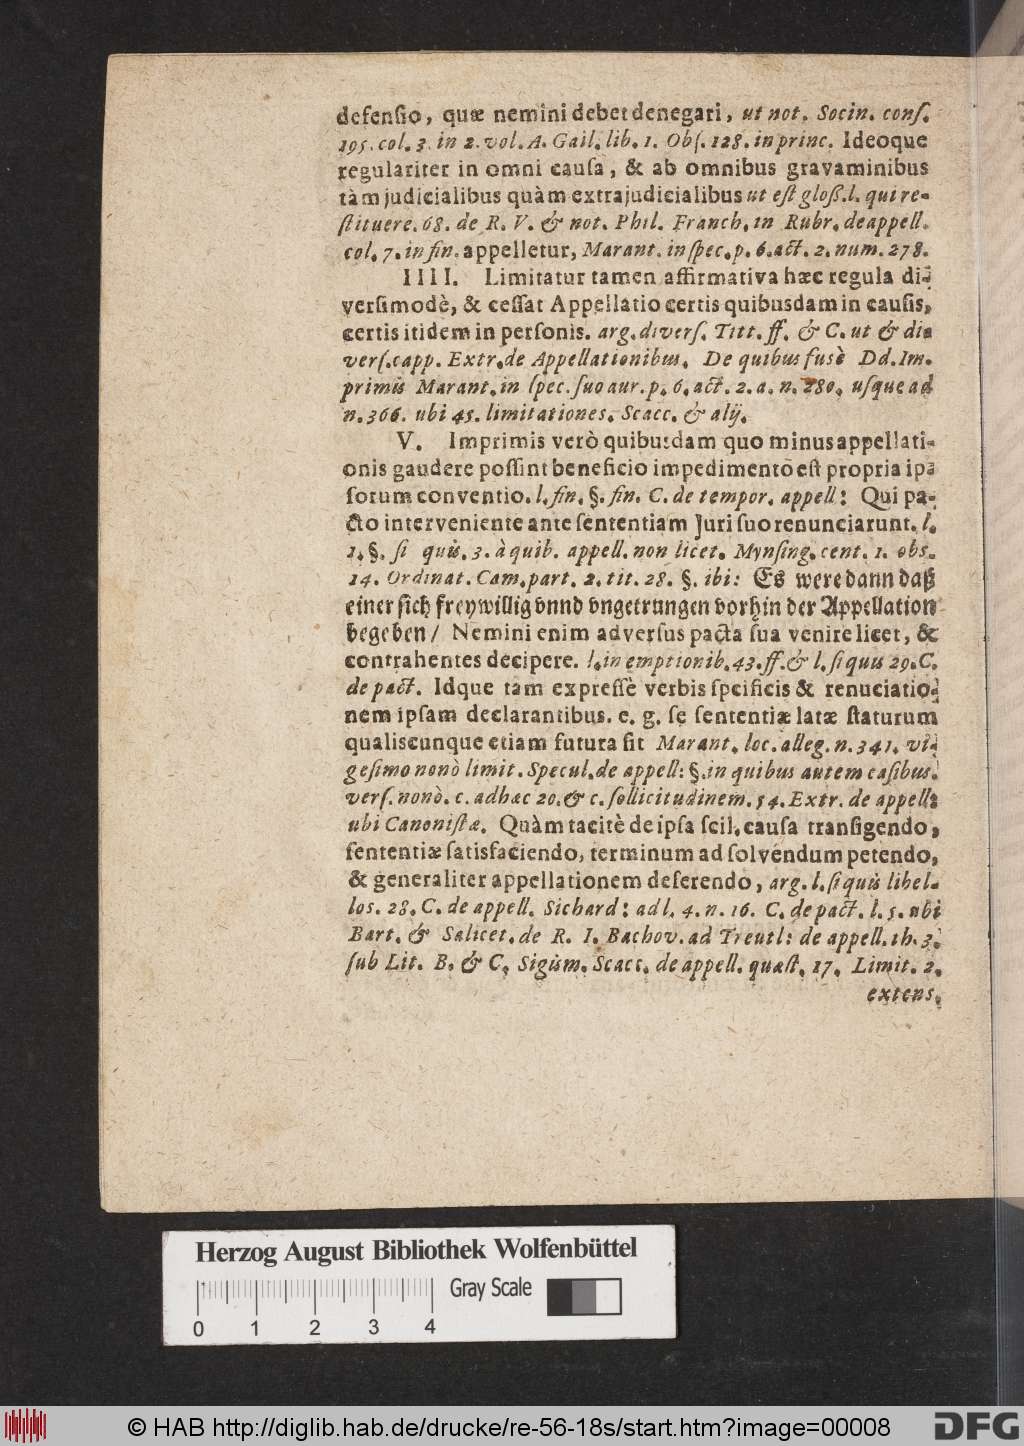 defenſio, quæ nemini debet denegari, ut not. Socin. conſ.
195. col. 3. in 2. vol. A. Gail. lib. 1. Obſ. 128. in princ. Ideoque
regulariter in omni cauſa, & ab omnibus gravaminibus
tàm judicialibus quàm extrajudicialibus ut eſt gloß. l. qui re-
ſtituere. 68. de R. V. & not. Phil. Franch. in Rubr. de appell.
col. 7. in fin. appelletur, Marant. in ſpec. p. 6. act. 2. num. 278.
IIII. Limitatur tamen affirmativa hæc regula di-
verſimodè, & ceſſat Appellatio certis quibusdam in cauſis,
certis itidem in perſonis. arg. diverſ. Titt. ff. & C. ut & di-
verſ. capp. Extr. de Appellationibus. De quibus fusè Dd. Im-
primis Marant. in ſpec. ſuo aur. p. 6. act. 2. a. n. 280. uſque ad
n. 366. ubi 45. limitationes. Scacc. & alij.
V. Imprimis verò quibusdam quo minus appellati-
onis gaudere poſſint beneficio impedimentō eſt propria ip-
ſorum conventio. l. fin. §. fin. C. de tempor. appell: Qui pa-
cto interveniente ante ſententiam Juri ſuo renunciarunt. l.
1. §. ſi quis. 3. à quib. appell. non licet. Mynſing. cent. 1. obs.
14. Ordinat. Cam. part. 2. tit. 28. §. ibi: Es were dann daß
einer ſich freywillig vnnd vngetrungen vorhin der Appellation
begeben/ Nemini enim adverſus pacta ſua venire licet, &
contrahentes decipere. l. in emptionib. 43. ff. & l. ſi quis 29. C.
de pact. Idque tam expreſſè verbis ſpcificis & renuciatio-
nem ipſam declarantibus. e. g. ſe ſententiæ latæ ſtaturum
qualiscunque etiam futura ſit Marant. loc. alleg. n. 341. vi-
geſimo nonò limit. Specul. de appell: §. in quibus autem caſibus.
verſ. nonò. c. adhæc 20. & c. ſollicitudinem. 54. Extr. de appell:
ubi Canoniſtæ. Quàm tacitè de ipſa ſcil. cauſa tranſigendo,
ſententiæ ſatisfaciendo, terminum ad ſolvendum petendo,
& generaliter appellationem deſerendo, arg. l. ſi quis libel-
los. 28. C. de appell. Sichard: ad l. 4. n. 16. C. de pact. l. 5. ubi
Bart. & Salicet. de R. I. Bachov. ad Treutl: de appell. th. 3.
ſub Lit. B. & C. Sigism. Scacc. de appell. quæſt. 17. Limit. 2.
extens.
Herzog August Bibliothek Wolfenbüttel
Gray Scale
0 1 2 3 4
© HAB http://diglib.hab.de/drucke/re-56-18s/start.htm?image=00008
DFG